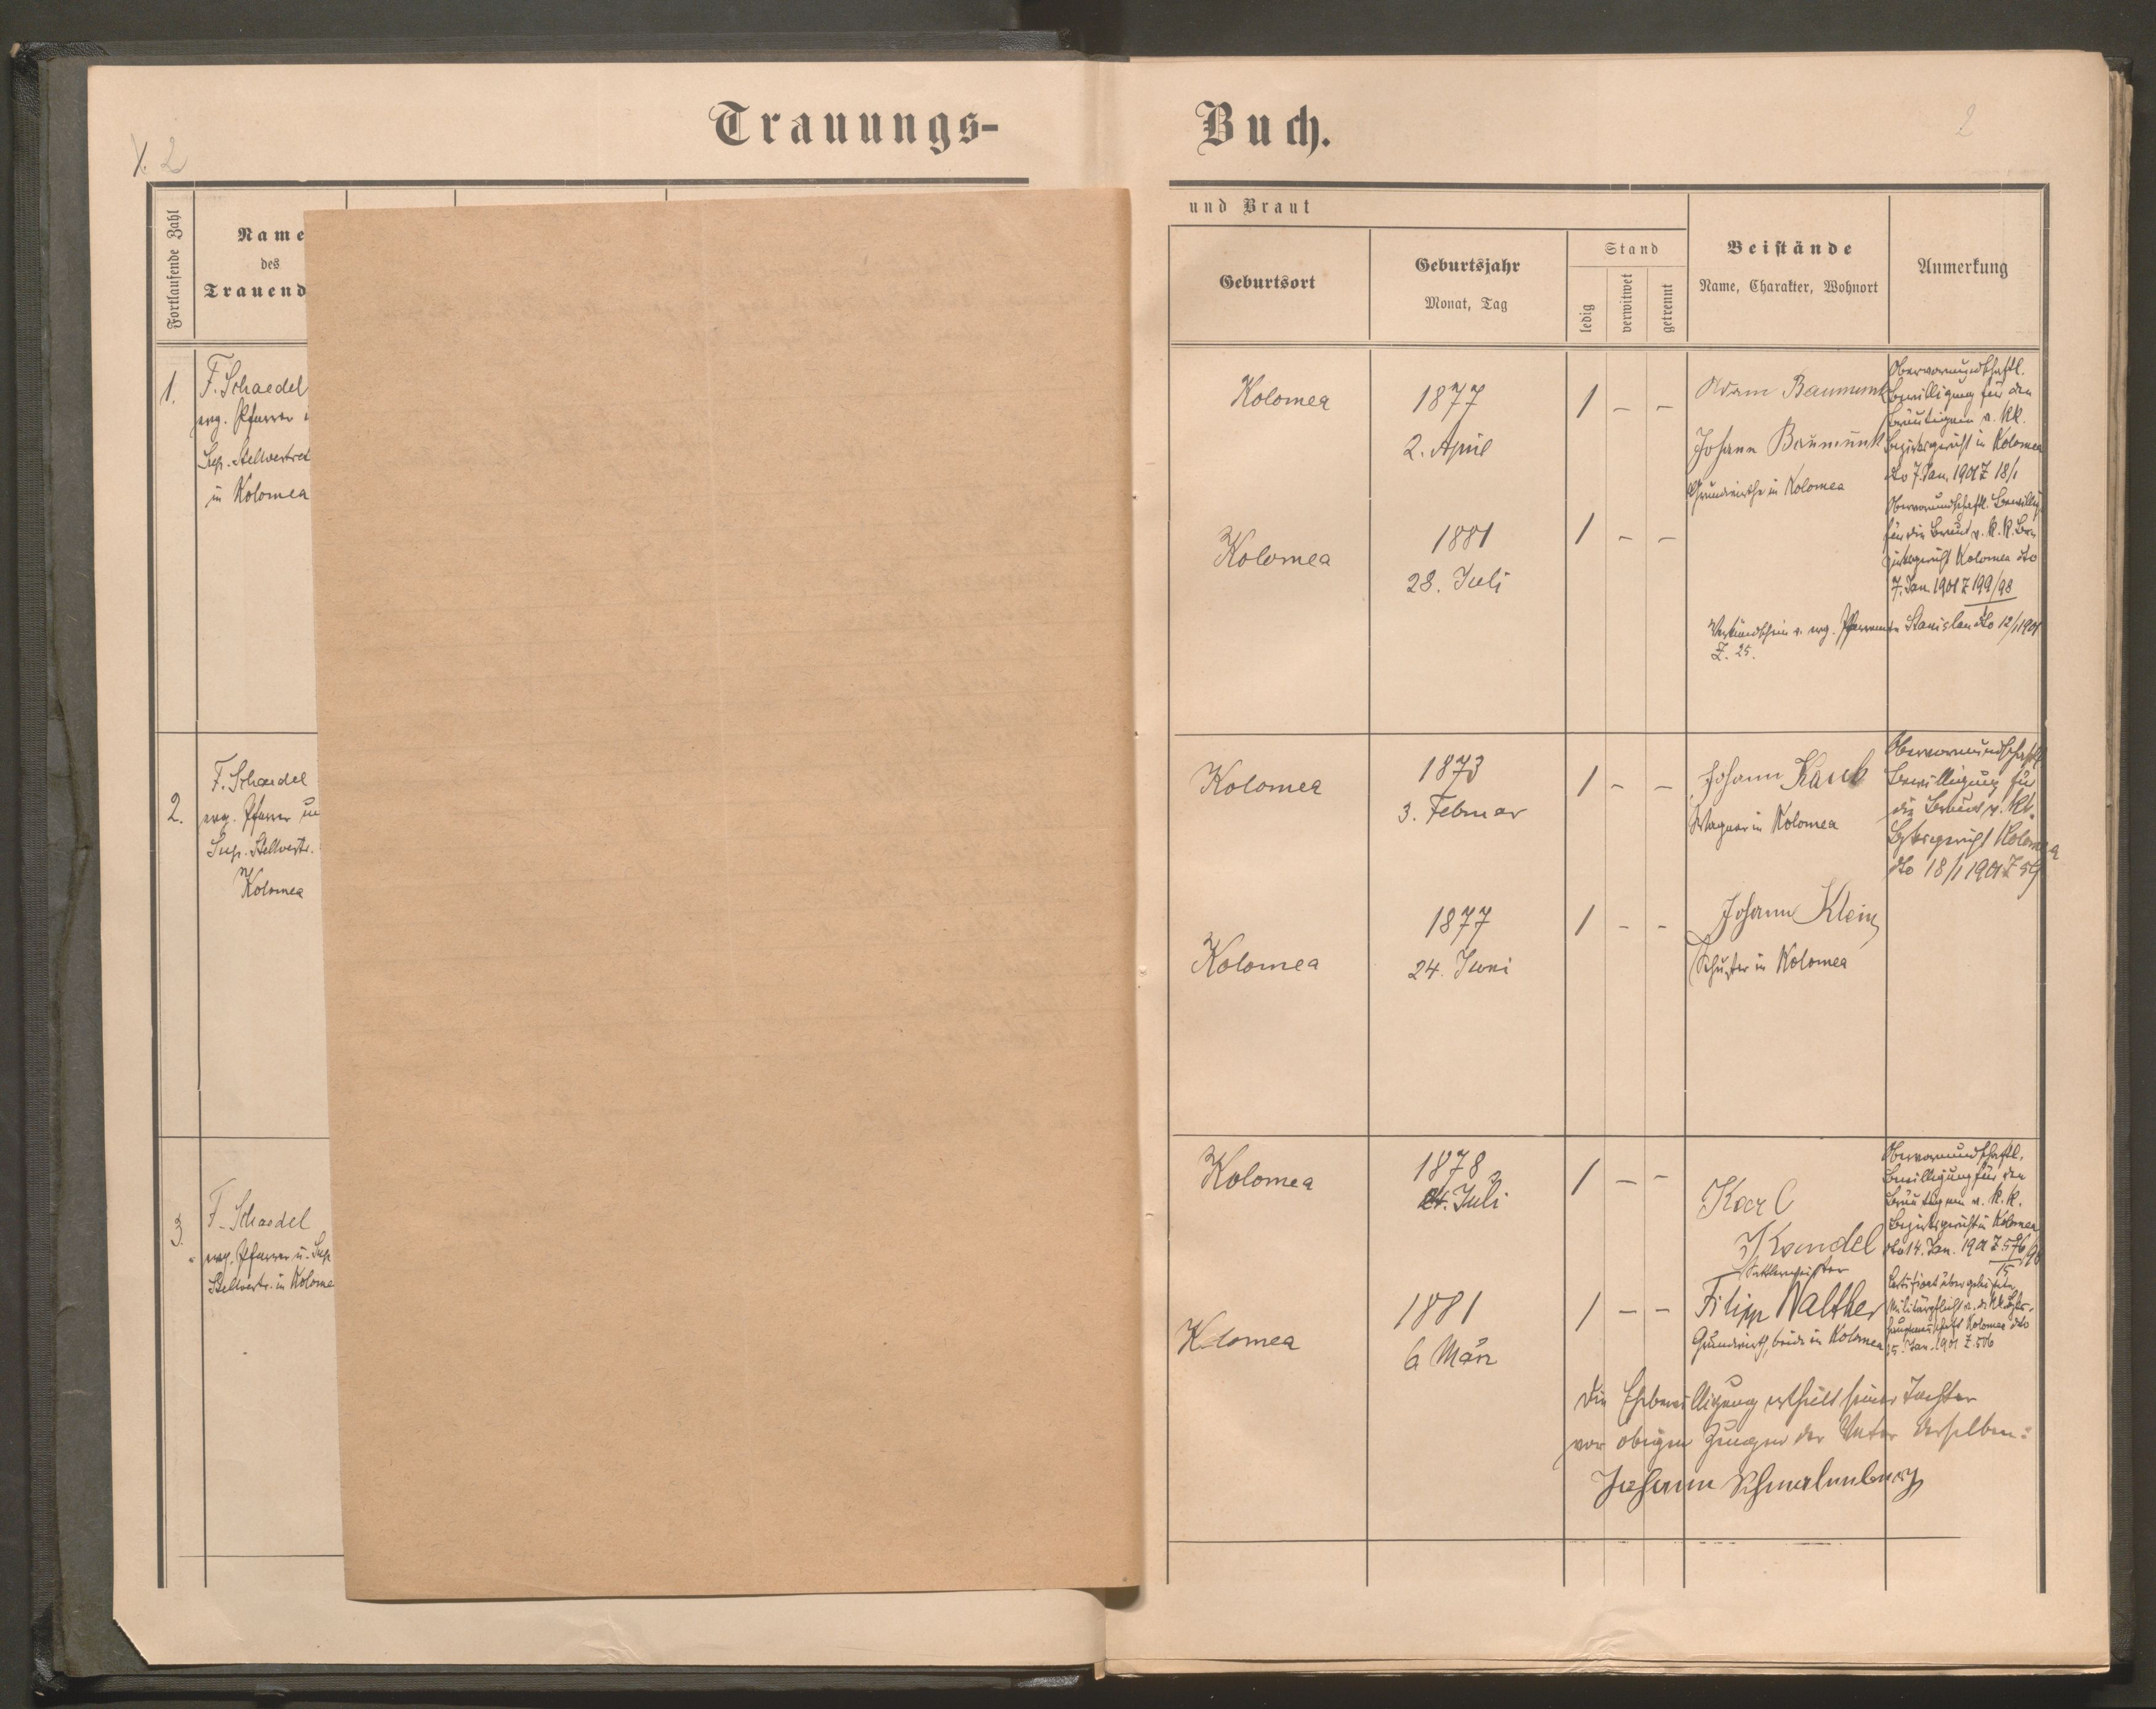 Trauungs-
Buch.
2
2
Fortlaufende Zahl
Name
des
Trauend
und Braut
Geburtsort
Geburtsjahr
Monat, Tag
Stand
ledig
verwitwet
getrennt
Beistände
Name, Charakter, Wohnort
Anmerkung
1.
F. Schaedel
evg. Pfarrer
Sup. Stellvertret
in Kolomea
Kolomea
1877
2. April
1 – –
Adam Baumunk
Johann Baumunk
Grundwirthe in Kolomea
Kolomea
1881
28. Juli
1 – –
Obervormundschaftl.
Bewilligung für den
Bräutigam v. KK.
Bezirksgericht in Kolomea
dto 7. Jan. 1901 Z 18/1
Obervormundschaftl. Bewillig.
für die Braut v. K. K. Be-
zirksgericht Kolomea dto
7. Jan. 1901 Z 199/98
Verkündschein v. evg. Pfarramte Stanislau dto 12/1 1901
Z. 25.
2.
F. Schaedel
evg. Pfarrer
Sup. Stellvertr.
Kolomea
Kolomea
1873
3. Februar
1 – –
Johann Kauk
Wagner in Kolomea
Obervormundschaftl
Bewilligung für
die Braut v. KK.
Bezirksgericht Kolomea
dto 18/1 1901 Z 59
Kolomea
1877
24. Juni
1 – –
Johann Klein
Schuster in Kolomea
3.
F. Schaedel
evg. Pfarrer u. Sup.
Stellvertr. in Kolome
Kolomea
1878
24. Juli
1 – –
Karl
Kandel
Sattlermeister
Obervormundschaftl.
Bewilligung für den
Bräutigam v. K. K.
Bezirksgericht in Kolomea
dto 14. Jan. 1901 Z 576/98
15
Kolomea
1881
6 März
1 – –
Filipp Walther
Grundwirth, beide in Kolomea
Certificat über
Militärpflicht v. d. KK.
Kolomea dto
15. Jan. 1901 Z. 506
Die Ehebewilligung ertheilt seiner Tochter
vor obigen Zeugen der Vater derselben:
Johann Schmalenberg